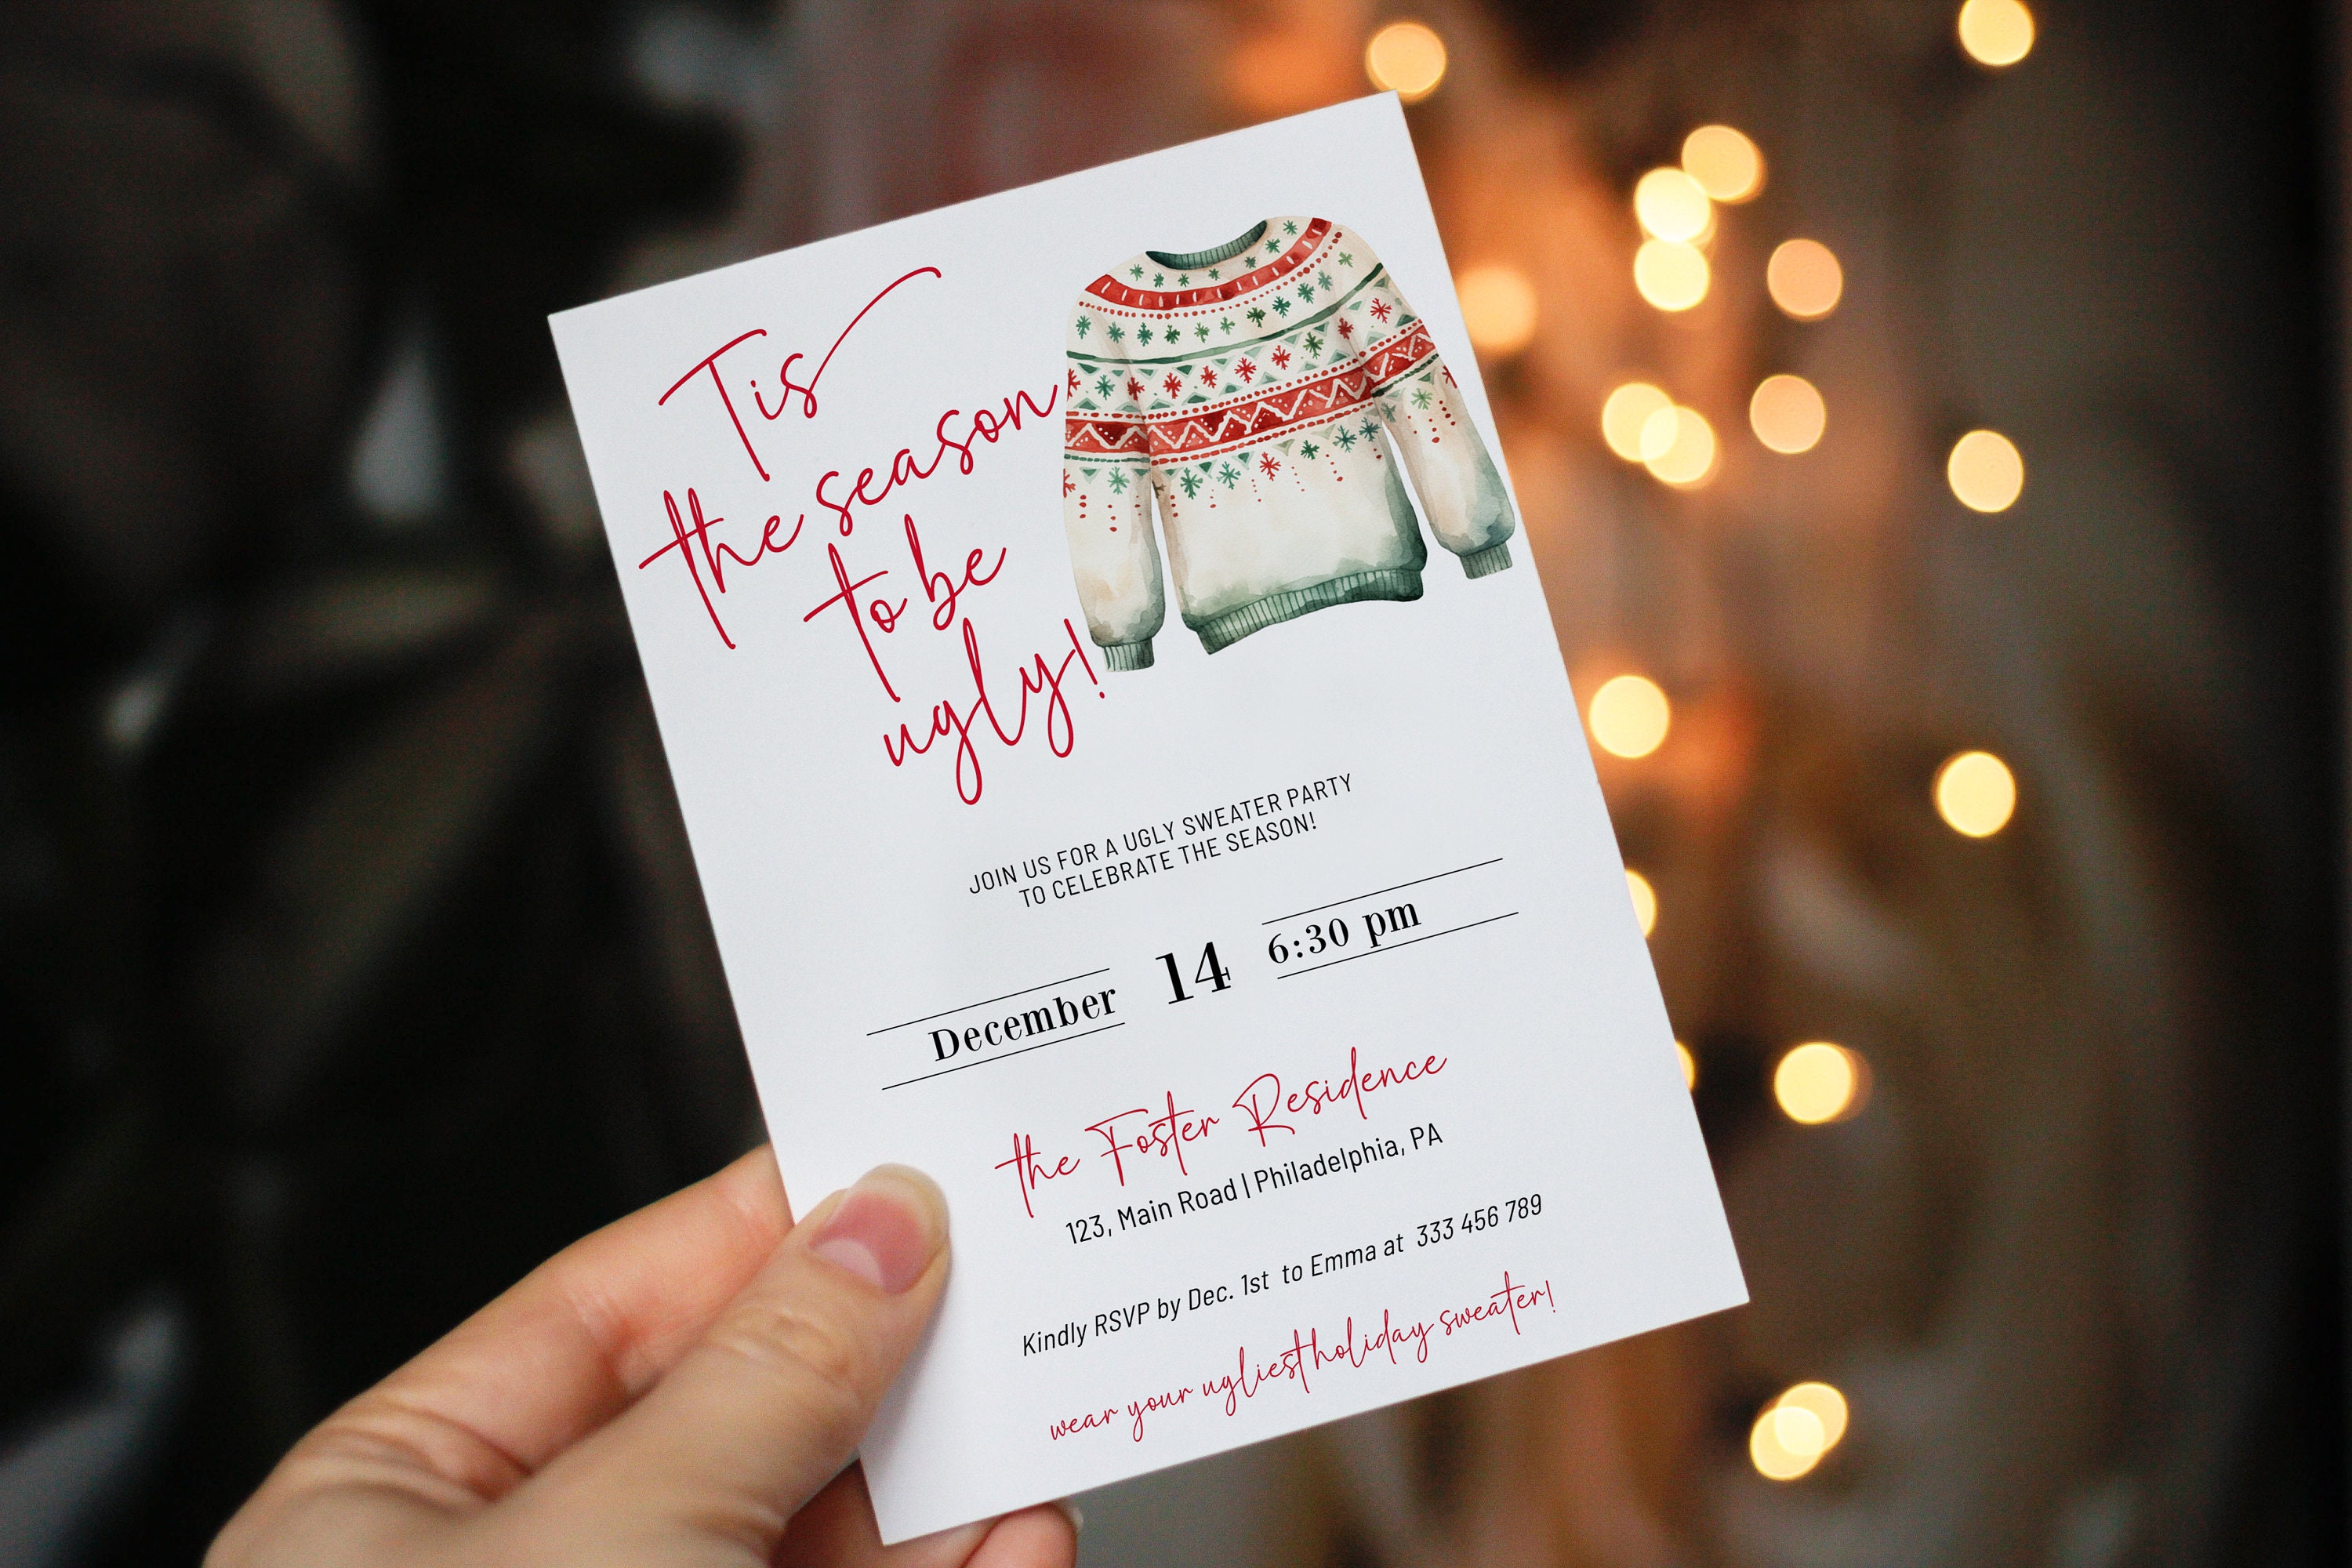 Tis
the season
to be
ugly!
JOIN US FOR A UGLY SWEATER PARTY
TO CELEBRATE THE SEASON!
December 14 6:30 pm
the Foster Residence
123, Main Road | Philadelphia, PA
Kindly RSVP by Dec. 1st to Emma at 333 456 789
wear your ugliest holiday sweater!